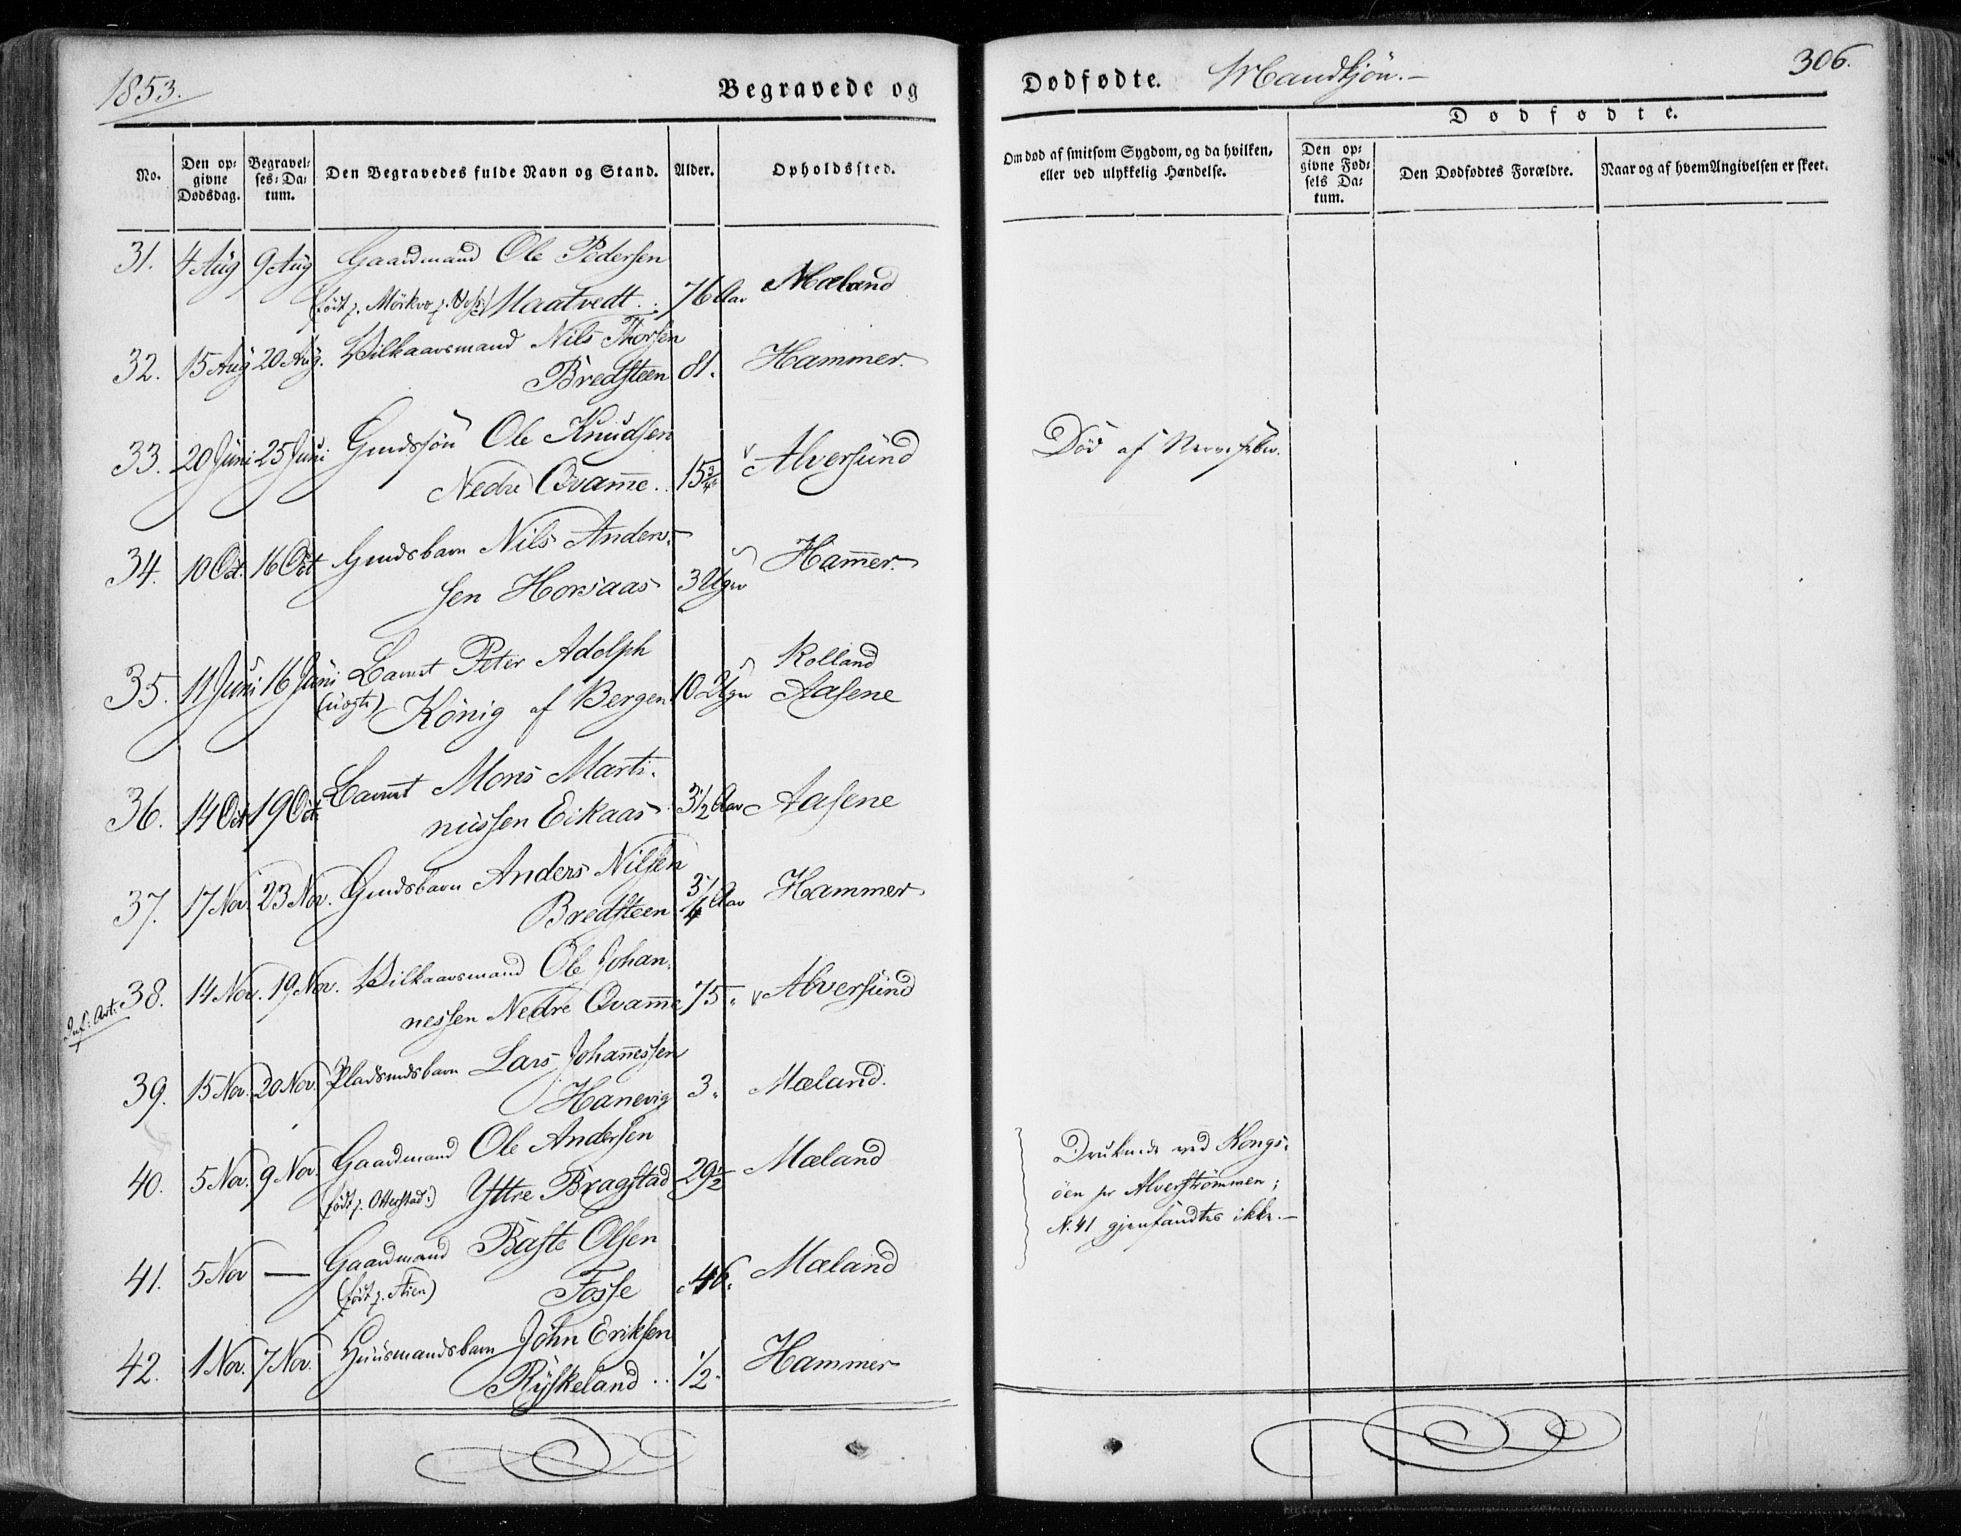 1853.
Begravede og
Dødfødte. Mandkjøn.
306.
No.
Den opgivne Dødsdag.
Begravelses-Datum.
Den Begravedes fulde Navn og Stand.
Alder.
Opholdssted.
Om død af smitsom Sygdom, og da hvilken,
eller ved ulykkelig Hændelse.
Dødfødte.
Den opgivne Fødsels Datum.
Den Dødfødtes Forældre.
Naar og af hvem Angivelsen er skeet.
31. 4 Aug 9 Aug Gaardmand Ole Pedersen
(født p. Mörkve p. Voss) Maatvedt. 76 Aar Mæland
32. 15 Aug 20 Aug. Vilkaarsmand Nils Thorsen
Bredsteen 81. Hammer.
33. 20 Juni 25 Juni Gmdssön Ole Knudsen
Nedre Qvamme. 15 3/4 Alversund
Död af Nervefeber.
34. 10 Oct. 16 Oct Gmdsbarn Nils Ander-
sen Horsaas 3 Uger Hammer.
35. 11 Juni 16 Juni Barnet Peter Adolph
(uægte) König af Bergen 10 Uger Rolland
Aasene
36. 14 Oct 19 Oct. Barnet Mons Marti-
nussen Eikaas 3 1/2 Aar Aasene
37. 17 Nov. 23 Nov. Gmdsbarn Anders Nilsen
Bredsteen 3/4 Aar Hammer
38. 14 Nov. 19 Nov. Vilkaarsmand Ole Johan-
nessen Nedre Qvamme 75. Alversund
39. 15 Nov. 20 Nov. Pladsmdsbarn Lars Johannessen
Hanevig 3. Mæland.
40. 5 Nov. 9 Nov. Gaardmand Ole Andersen
(født p. Otterstad.) Yttre Bragstad 29 1/2 Mæland
Druknede ved Kongs-
öen pr Alverströmmen;
N. 41 gjenfandtes ikke.
41. 5 Nov — Gaardmand Baste Olsen
(født p. Stien) Fosse 46. Mæland
42. 1 Nov. 7 Nov. Huusmandsbarn John Eriksen
Ryskeland 1/2 Hammer